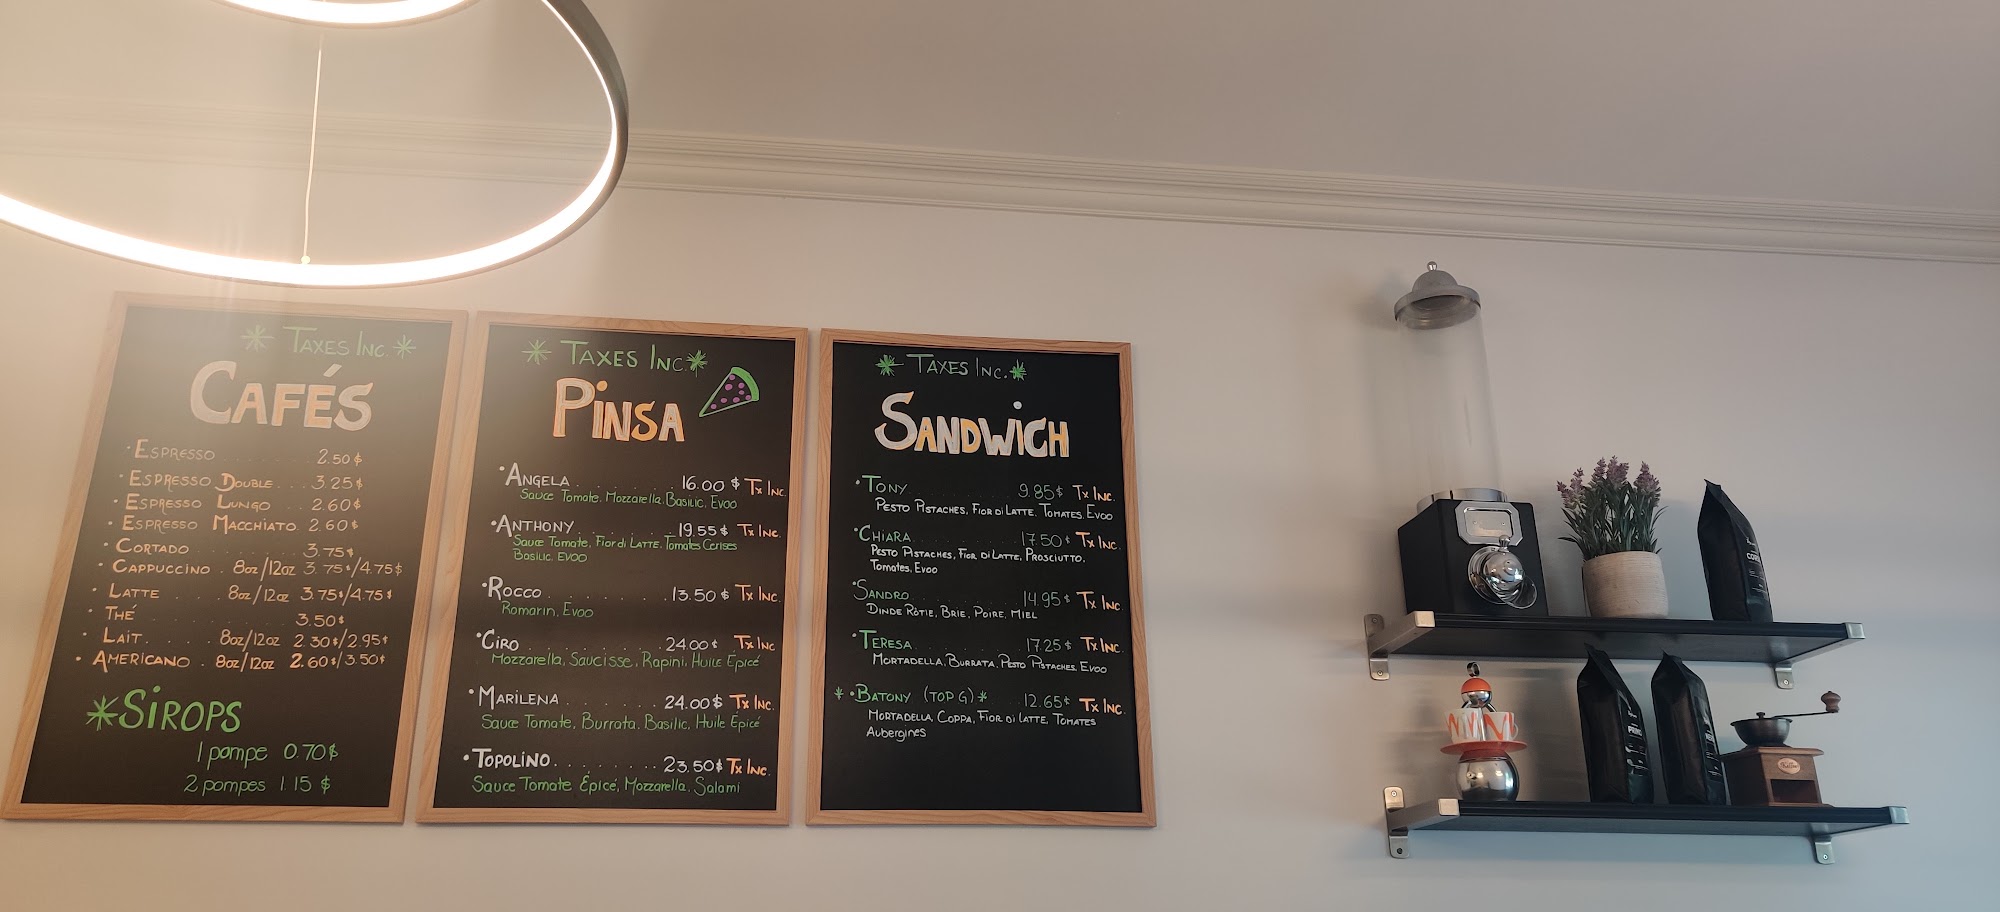 TAXES INC.
CAFÉS
ESPRESSO 2.50$
ESPRESSO DOUBLE 3.25$
ESPRESSO LUNGO 2.60$
ESPRESSO MACCHIATO 2.60$
CORTADO 3.75$
CAPPUCCINO 8oz/12oz 3.75$/4.75$
LATTE 8oz/12oz 3.75$/4.75$
THÉ 3.50$
LAIT 8oz/12oz 2.30$/2.95$
AMERICANO 8oz/12oz 2.60$/3.50$
SIROPS
1 pompe 0.70$
2 pompes 1.15 $
TAXES INC.
PINSA
ANGELA 16.00 $ Tx INC.
Sauce Tomate, Mozzarella, Basilic, Evoo
ANTHONY 19.55 $ Tx INC.
Sauce Tomate, Fior di LATTE, Tomates Cerises
Basilic, EVOO
ROCCO 13.50 $ Tx INC.
Romarin, Evoo
CIRO 24.00 $ Tx INC
Mozzarella, Saucisse, Rapini, Huile Épicé
MARILENA 24.00 $ Tx INC.
Sauce Tomate, Burrata, Basilic, Huile Épicé
TOPOLINO 23.50$ Tx INC.
Sauce Tomate Épicé, Mozzarella, Salami
TAXES INC.
SANDWICH
TONY 9.85$ Tx INC.
PESTO PISTACHES, FIOR DI LATTE, TOMATES, EVOO
CHIARA 17.50$ Tx INC.
PESTO PISTACHES, FIOR DI LATTE, PROSCIUTTO,
Tomates, Evoo
SANDRO 14.95$ Tx INC.
DINDE RÔTIE, BRIE, POIRE, MIEL
TERESA 17.25$ Tx INC.
MORTADELLA, BURRATA, PESTO PISTACHES, EVOO
BATONY (TOP G) 12.65$ Tx INC.
MORTADELLA, COPPA, FIOR DI LATTE, TOMATES
Aubergines